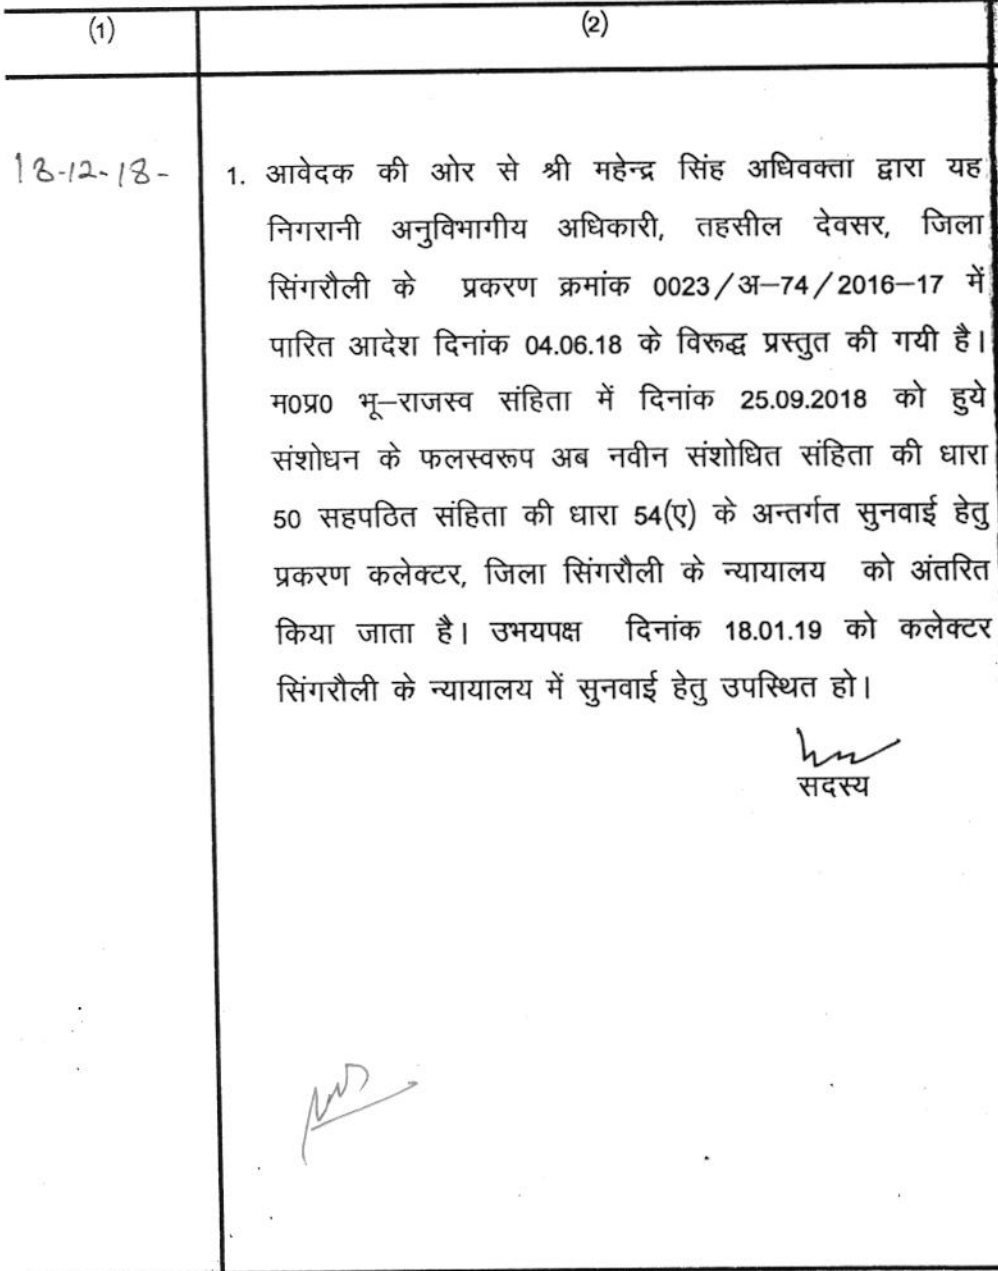 (1) (2)
13-12-18- 1. आवेदक की ओर से श्री महेन्द्र सिंह अधिवक्ता द्वारा यह
निगरानी अनुविभागीय अधिकारी, तहसील देवसर, जिला
सिंगरौली के प्रकरण क्रमांक 0023/अ–74/2016–17 में
पारित आदेश दिनांक 04.06.18 के विरूद्ध प्रस्तुत की गयी है।
म0प्र0 भू–राजस्व संहिता में दिनांक 25.09.2018 को हुये
संशोधन के फलस्वरूप अब नवीन संशोधित संहिता की धारा
50 सहपठित संहिता की धारा 54(ए) के अन्तर्गत सुनवाई हेतु
प्रकरण कलेक्टर, जिला सिंगरौली के न्यायालय को अंतरित
किया जाता है। उभयपक्ष दिनांक 18.01.19 को कलेक्टर
सिंगरौली के न्यायालय में सुनवाई हेतु उपस्थित हो।
सदस्य